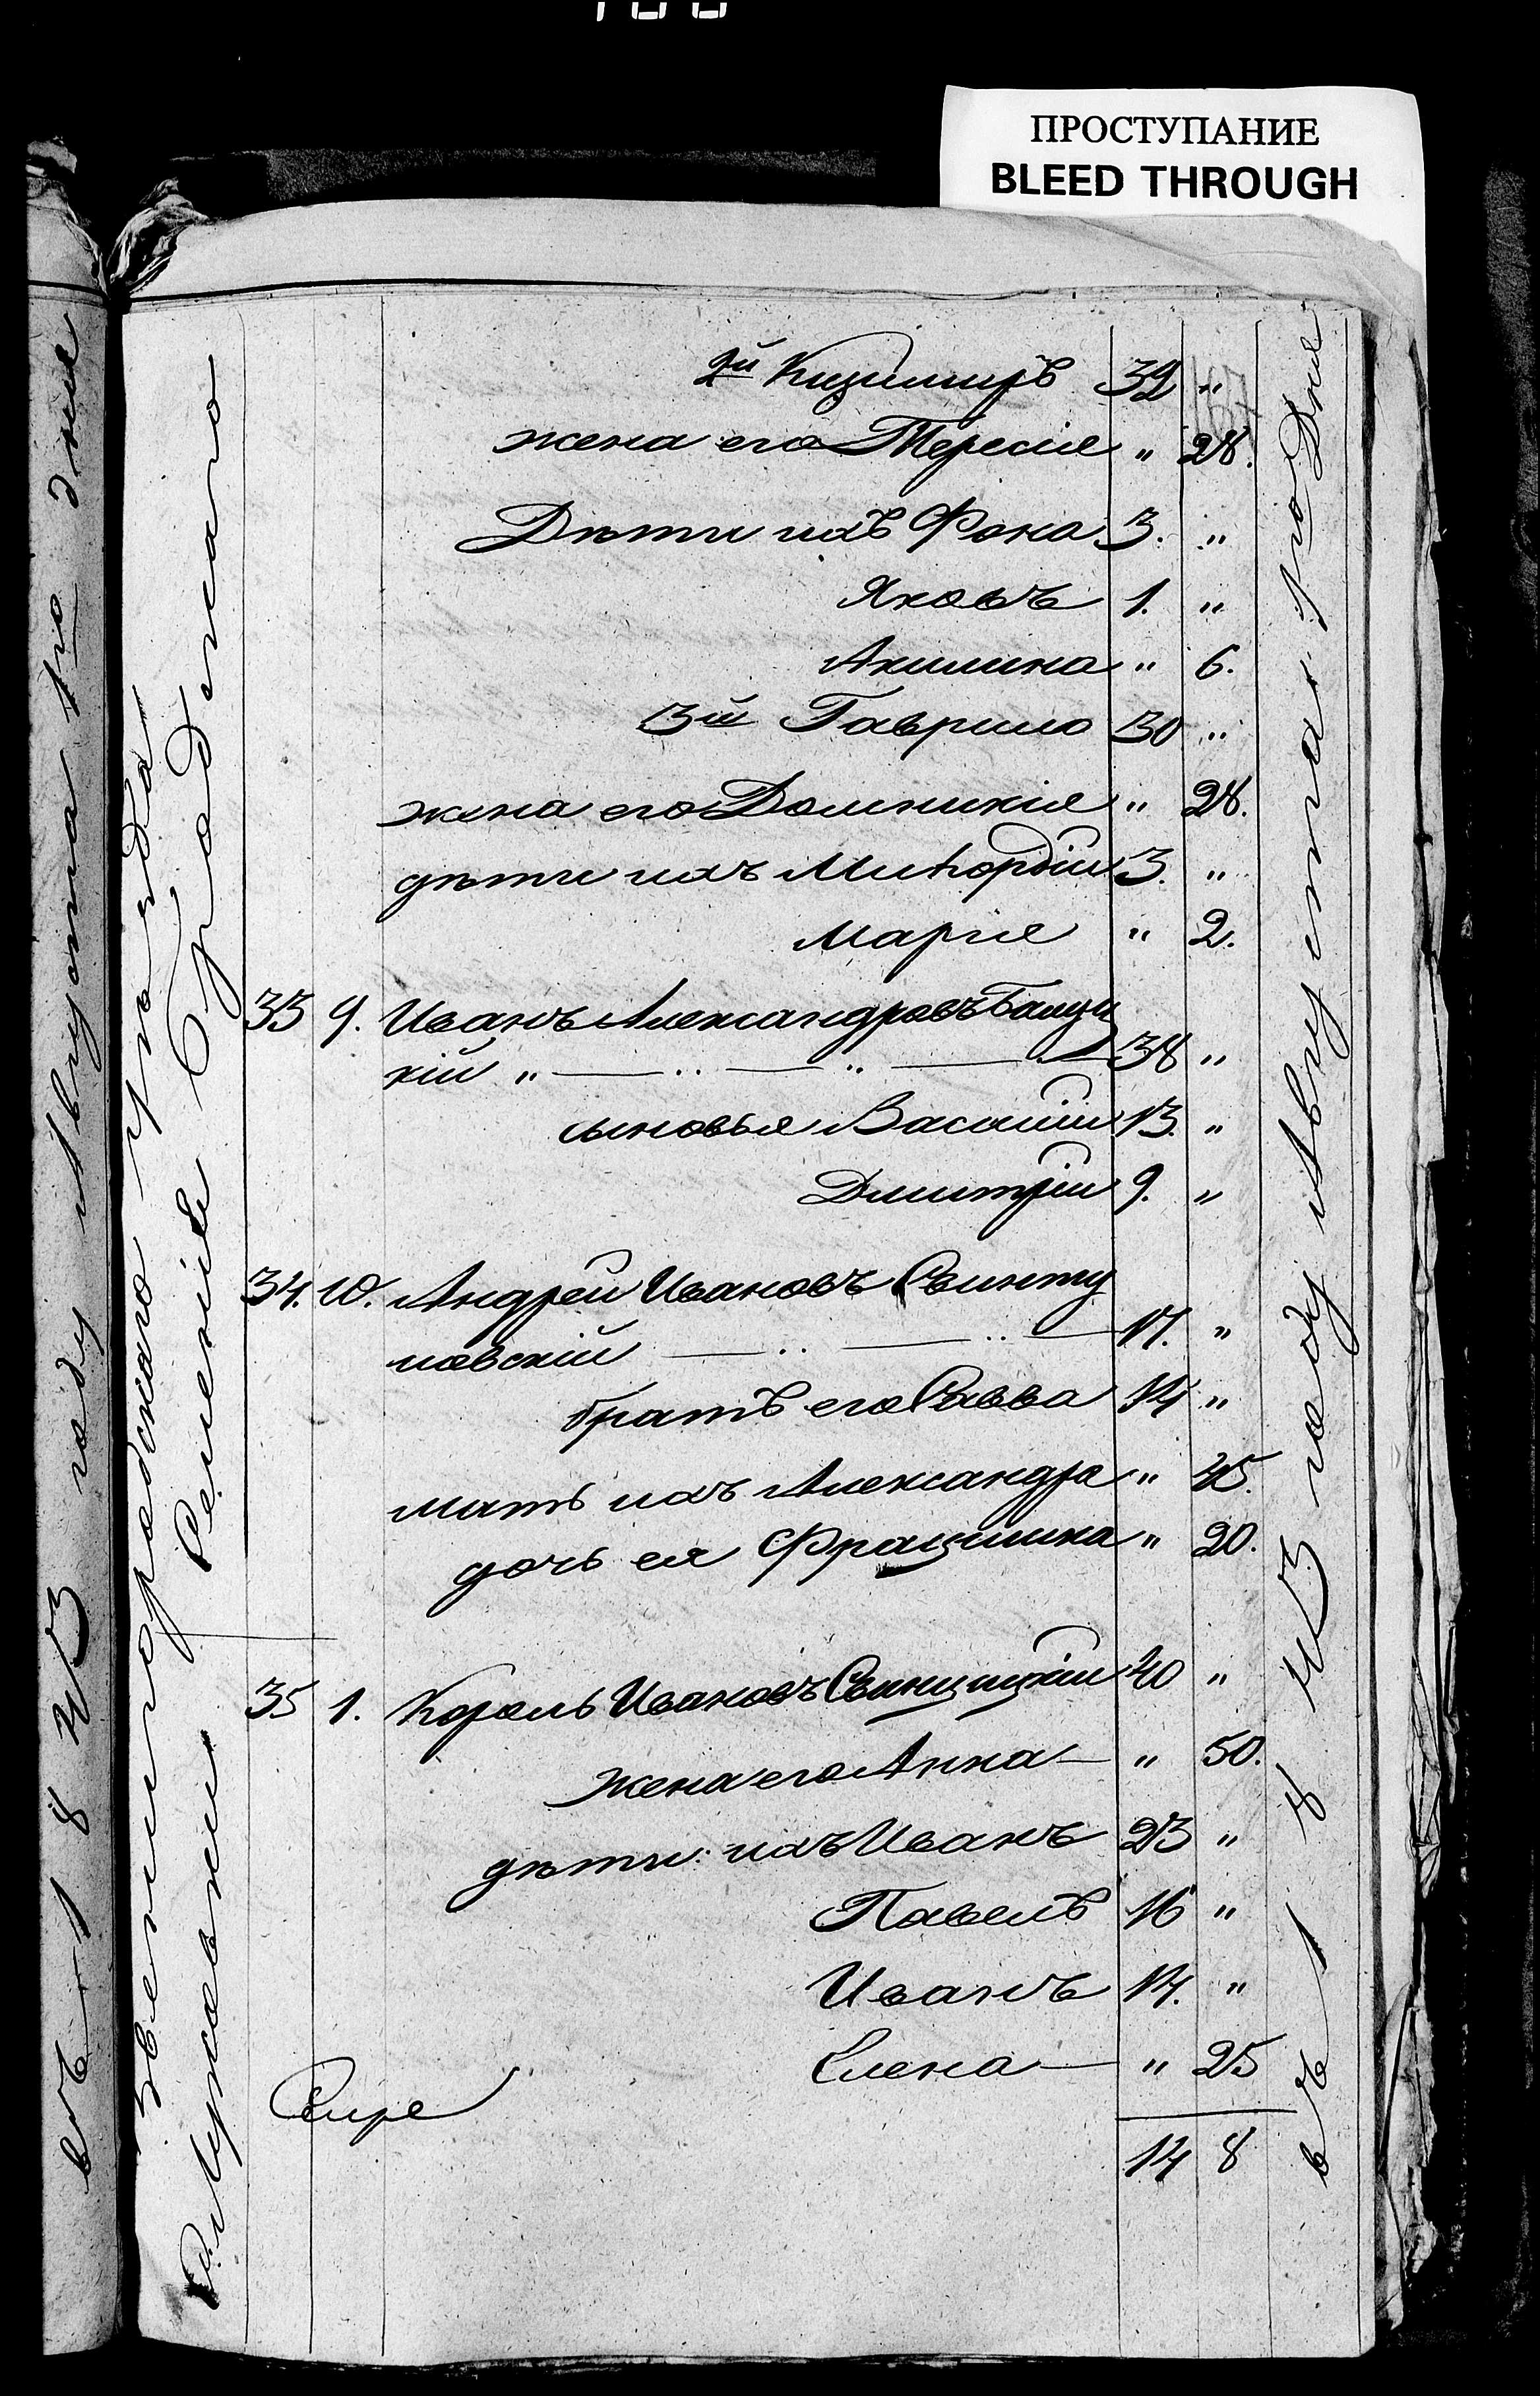 ПРОСТУПАНИЕ
BLEED THROUGH
2й Кизимиръ 32 "
жена его Тересія " 28.
Дѣти ихъ Фока 3. "
Яковъ 1. "
Акилина " 6.
3й Гаврило 30 "
жена его Домникія " 28.
дѣти ихъ 3. "
Марія " 2.
33 9. Иванъ Александровъ Балиц
кій " — .. — .. — 38 "
сыновья Василій 13. "
Дмитрій 9. "
34. 10. Андрей Ивановъ Свинту
новскій — .. — .. — 17. "
братъ его Савва 14 "
мать ихъ Александра " 45.
дочь ея " 20.
35 1. Кароль Ивановъ Свинцицкій 40 "
жена его Анна — " 50.
дѣти: ихъ Иванъ 23 "
Павелъ 16 "
Иванъ 14. "
Елена — " 25
14 8
Звенигородскаго уѣзда
въ 1 8 43 году Августа дня
въ 1 8 43 году Августа дня